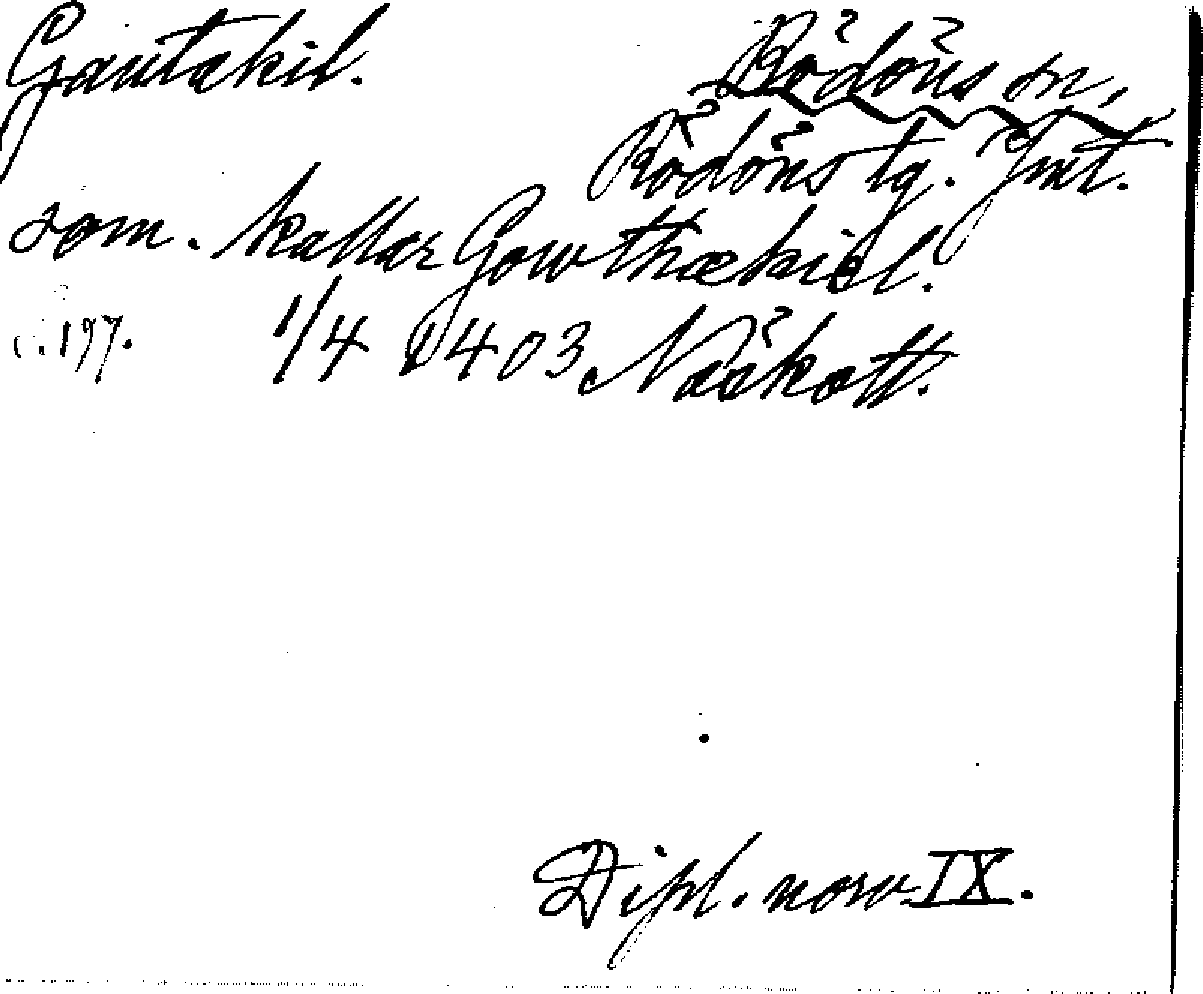 Gautakil. Rödöns sn,
Rödöns tg. Jmt.
som. kallar Gowthækiel.
s. 197. 1/4 1403 Näskott.
Dipl. norv IX.